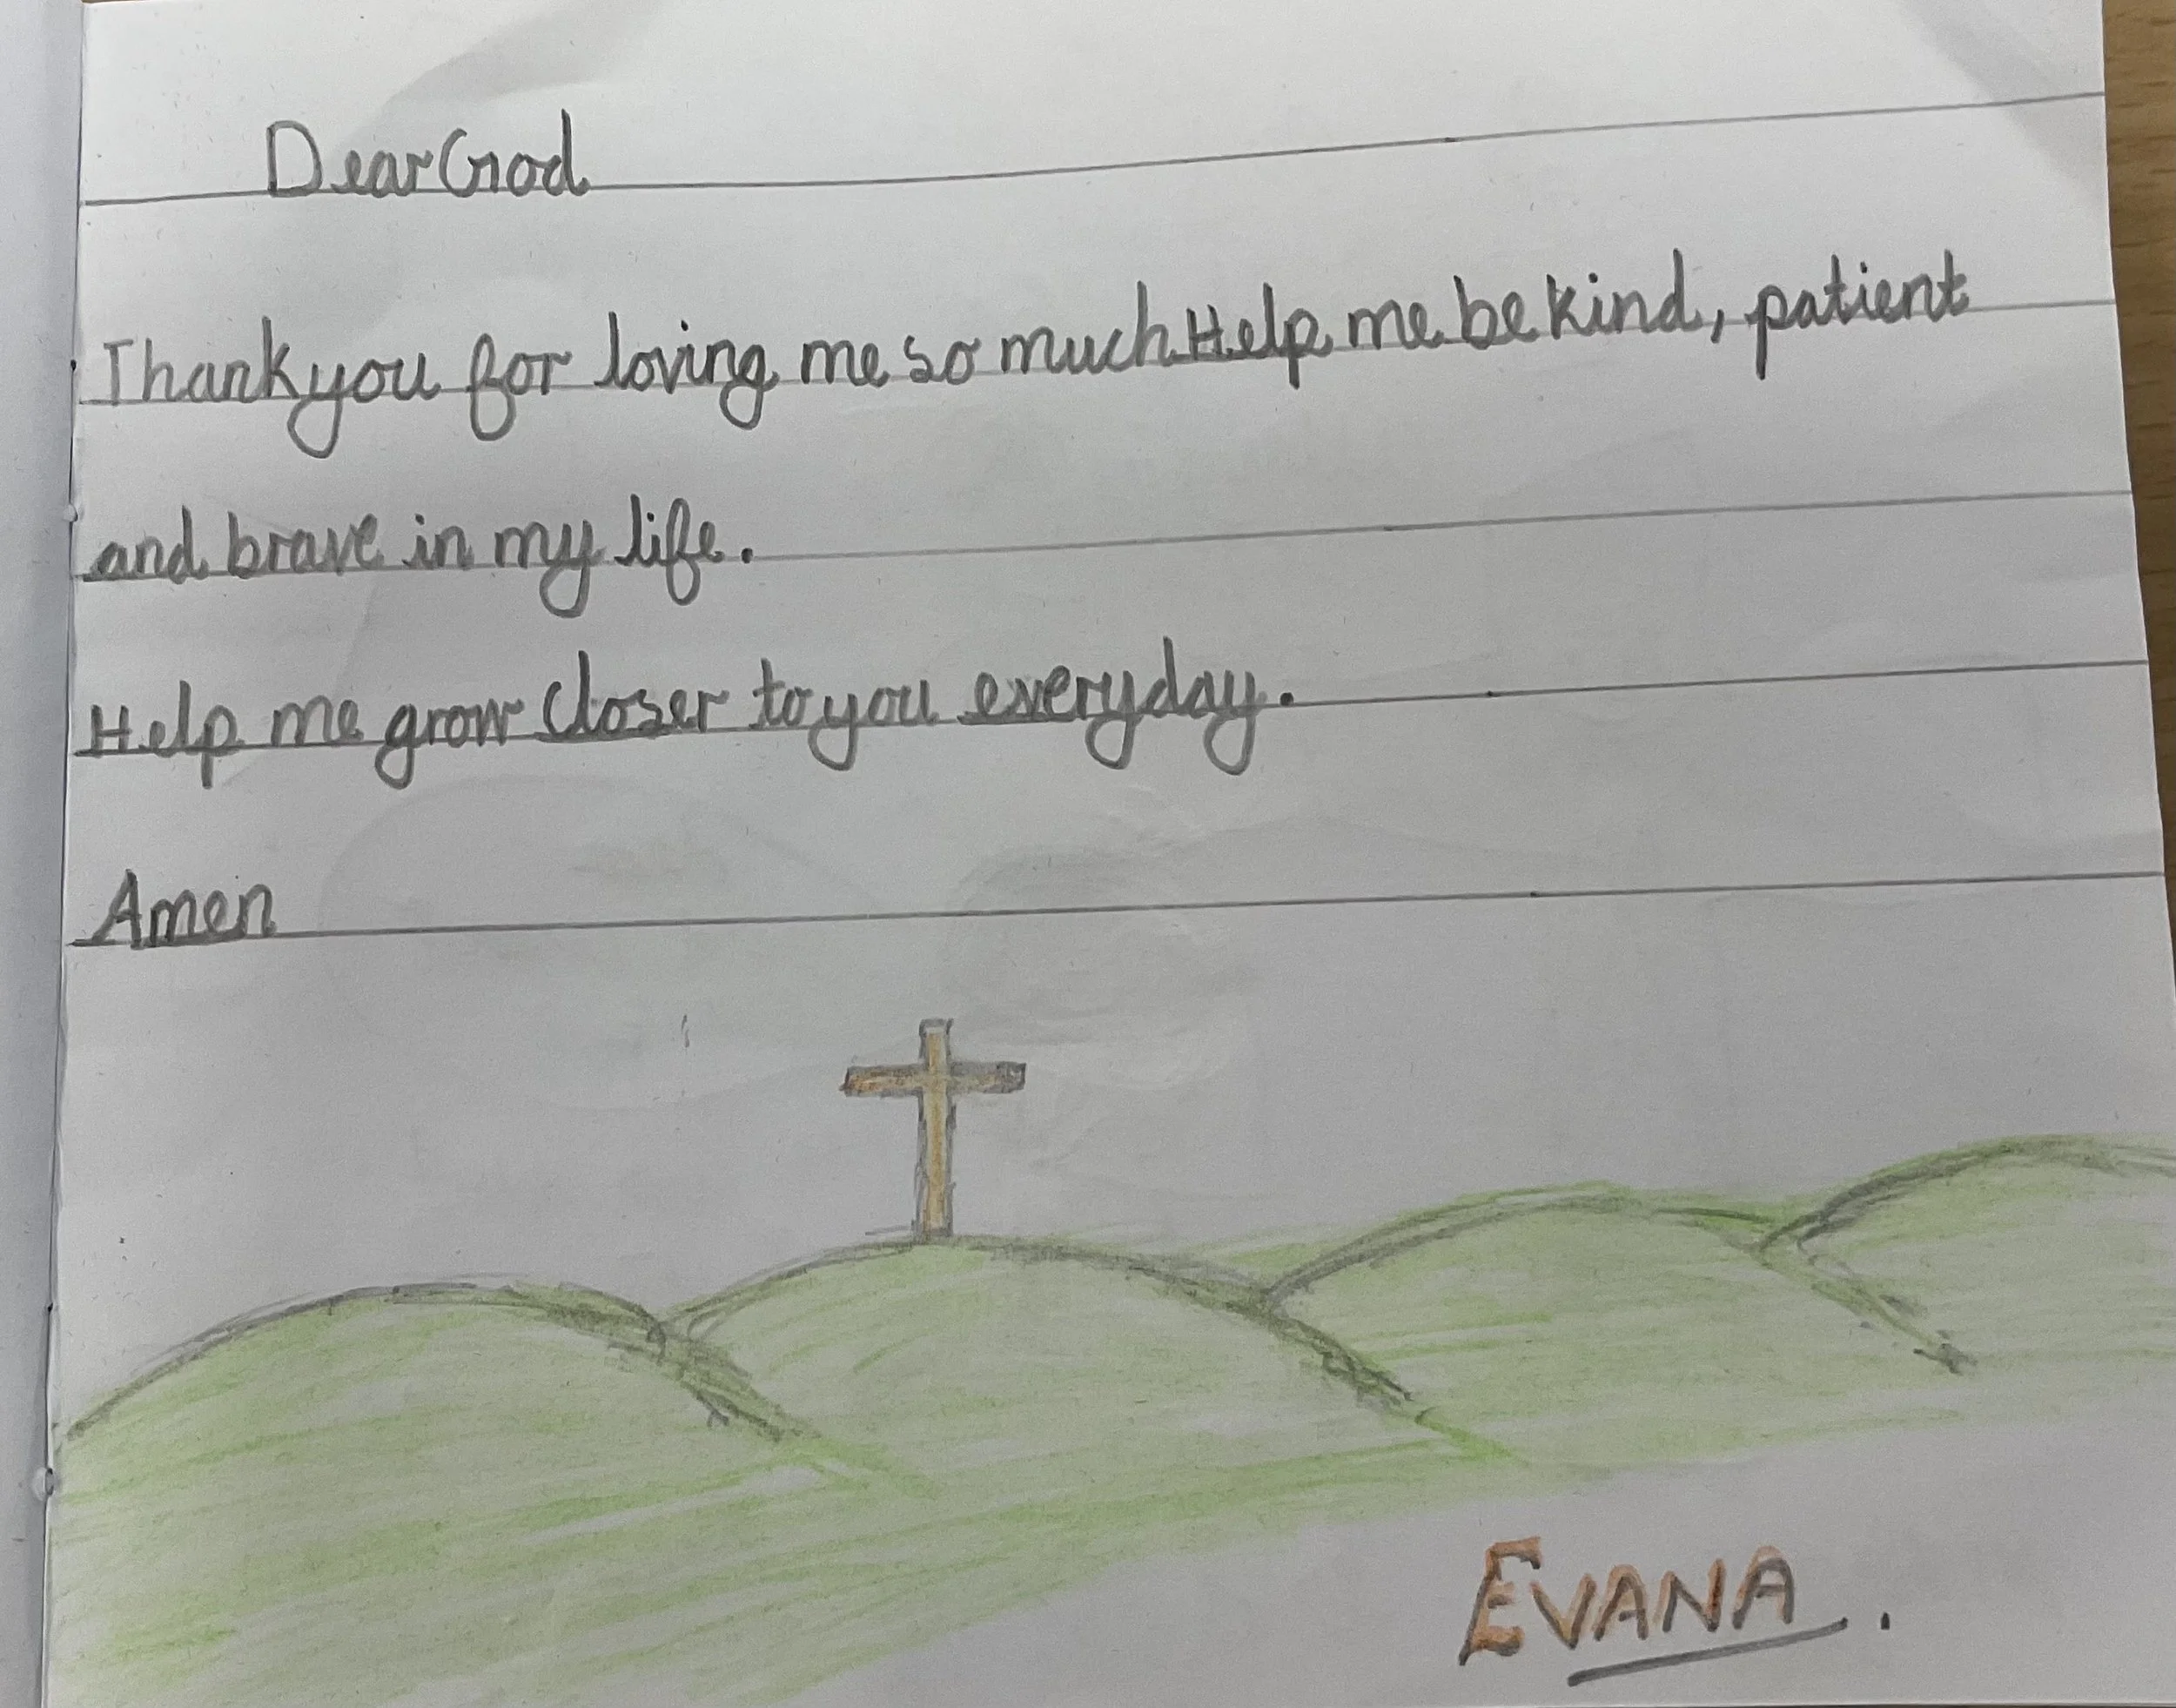 Dear God
Thank you for loving me so much Help me be kind, patient
and brave in my life.
Help me grow closer to you everyday.
Amen
EVANA.